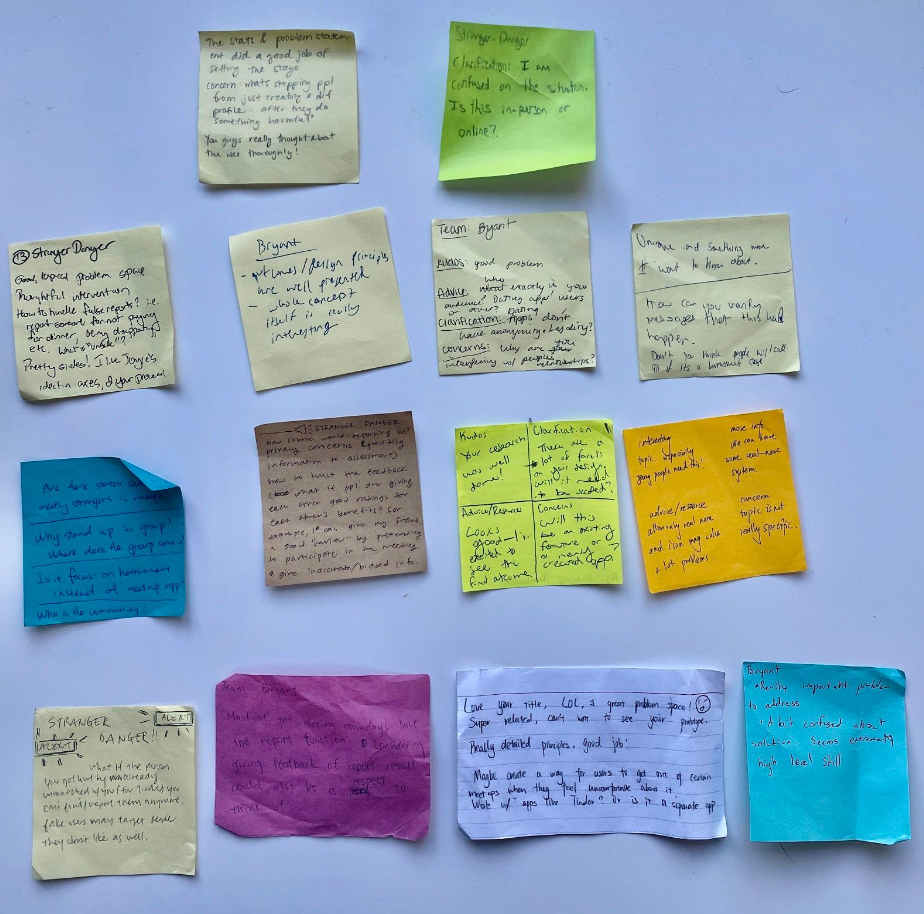 The stats & problem statem
ent did a good job of
setting the stage
concern whats stopping ppl
from just creating a dif
profile after they do
something harmful?
You guys really thought about
the user thoroughly!
Stranger-Danger
Clarification: I am
confused on the situation.
Is this in-person or
online?
Stranger Danger
Good, topical problem space
Thoughtful intervention
How to handle false reports? i.e.
report someone for not paying
for dinner, being
etc. What's "unsafe"??
Pretty slides! I like
axes, & your
Bryant
- outcomes/design principles
are well presented
- whole concept
itself is really
interesting
Team: Bryant
Kudos: good problem
who
Advice: what exactly is your
audience? Dating app users
or other? Dating
Clarification: Apps don't
have anonymity
Concerns: Why are
interfering w/ peoples relationships?
Unique and something more
I want to know about.
How can you verify
messages that this had
happen.
Don't you think people will call
911 if its a harassment case
Are there stories
many strangers is
Why stand up in group?
Where does the group come?
Is it focus on harassment
instead of meetup app?
Who is the community?
STRANGER DANGER
how would reporting
privacy concerns &
information to assessment)
how to trust the feedback
what if ppl are giving
each other good ratings for
each other's benefits? for
example, I can give my friend
a good review by pretending
to participate in the meeting
& give inaccurate/biased info.
Kudos
Your research
was well
done!
Clarification
There are a
lot of
on your design
will it need
to be
Advice/Resource
Looks
good - I'm
excited to
see the
final outcome
Concerns
Will this
be an existing
feature or
a newly
created app?
interesting
topic. especially
young people need this!
more info
we can have
some real-name
system.
advice/resource
allow only real name
and icon may solve
a lot problems
concern
topic is not
really specific.
STRANGER
ALERT
ALERT
DANGER!!
What if the person
you got hurt by
unmatched w/ you (for Tinder) you
can't find/report them anymore.
fake users may target people
they don't like as well.
Team Bryant
Most of the nowadays have
the report function. Considering
giving feedback of report result
could also be a aspect to
think
Love your title, LOL, & great problem space!
Super related, can't wait to see your prototype.
Really detailed principles, good job!
Maybe create a way for users to get out of certain
meet ups when they feel uncomfortable about it.
Work w/ apps like Tinder? Or is it a separate app
Bryant
• Really important problem
to address
• A bit confused about
solution. Seems extremely
high level still